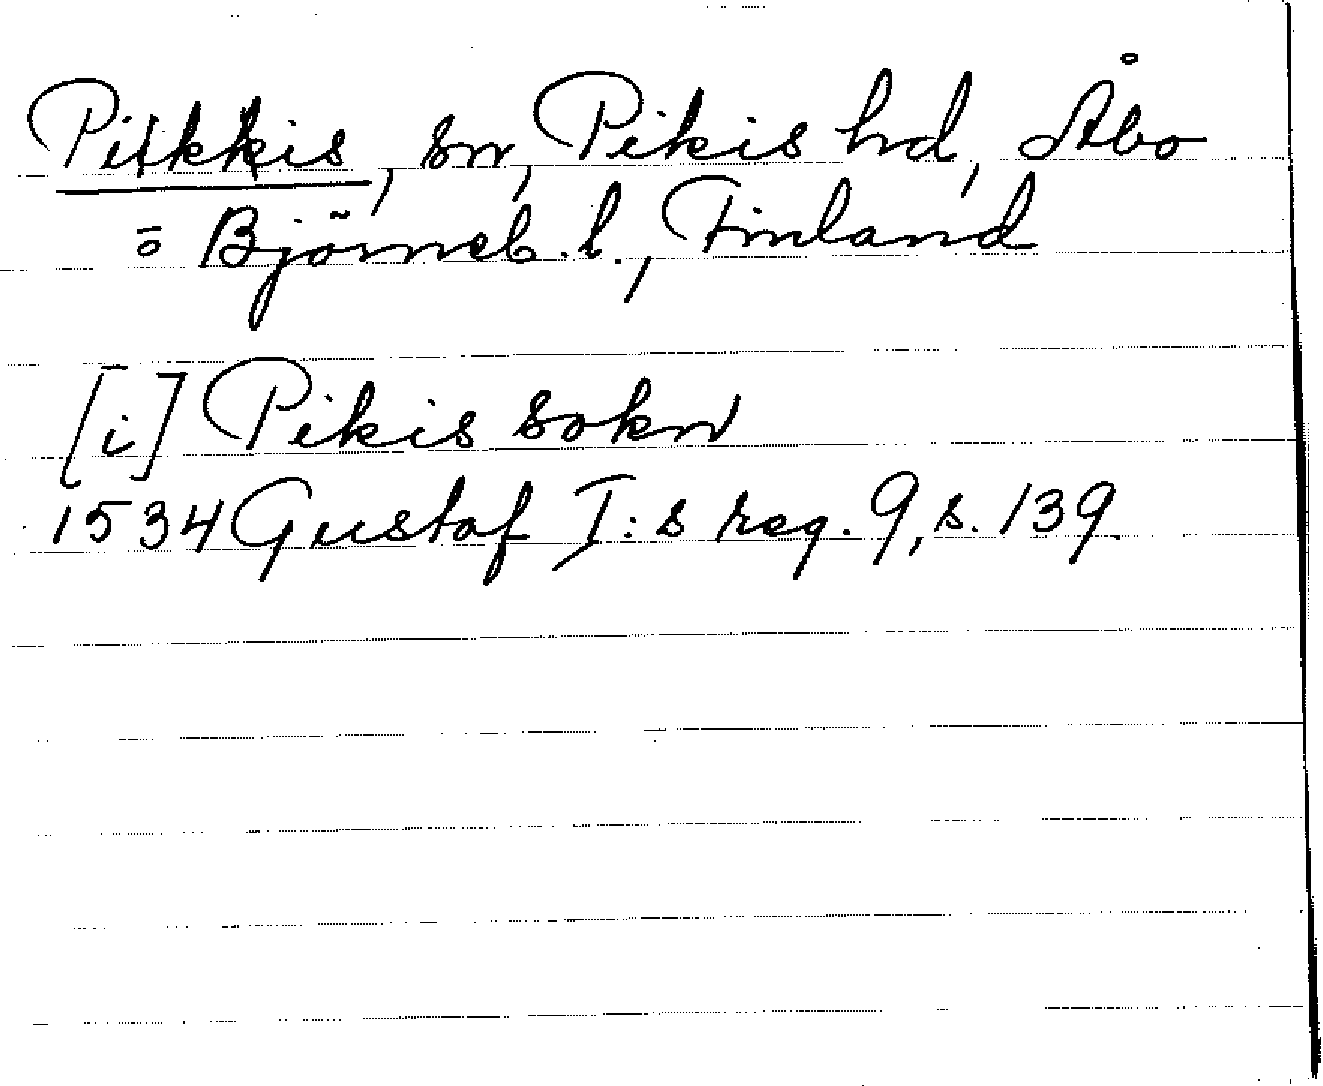 Pikis, sn, Pikis hd, Åbo
o Björneb. l., Finland
[i] Pikis sokn
1534 Gustaf I:s reg. 9, s. 139.